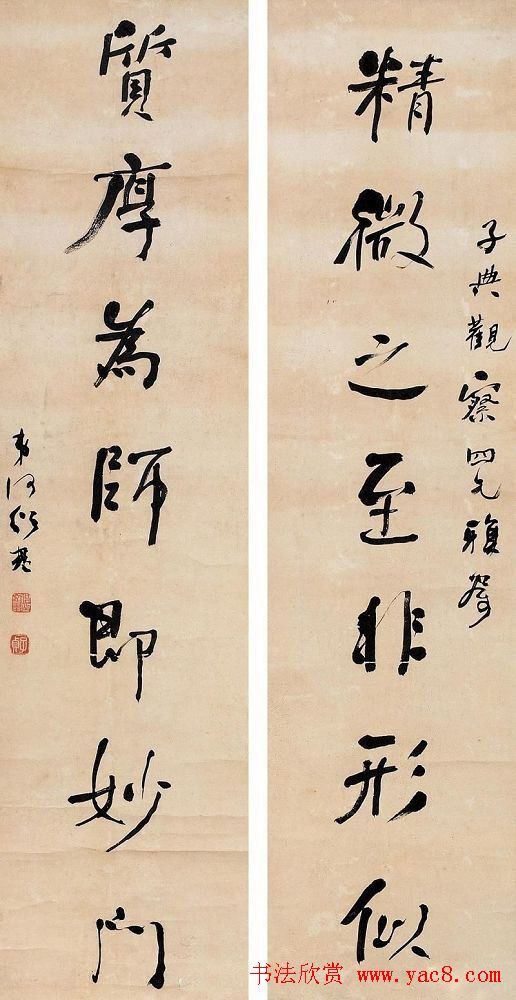 子典觀察四兄雅屬
精微之至非形似
質厚為師即妙門
弟何紹基
书法欣赏 www.yac8.com